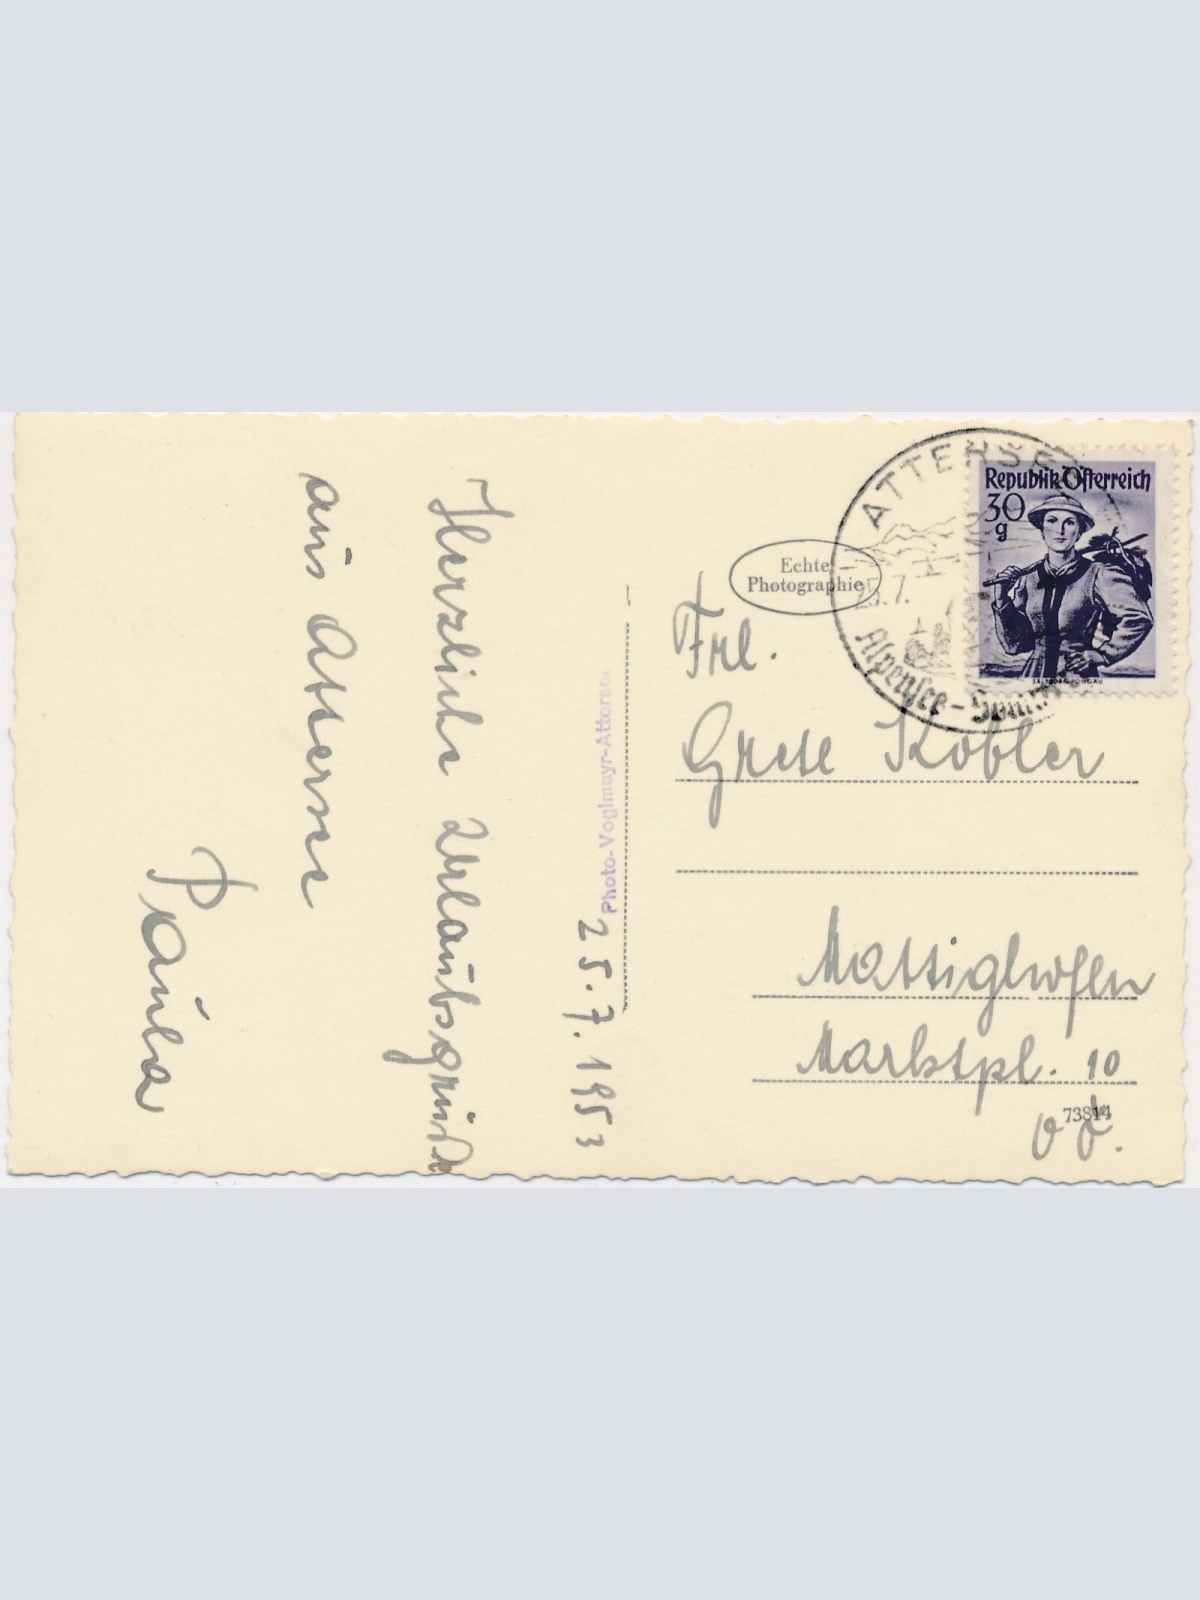 25.7.1953
Herzliche Urlaubsgrüße
aus Attersee
Paula
Photo-Voglmayr-Attersee
Echte
Photographie
ATTERSEE
25.7.
Alpensee-
Republik Österreich
30
g
SALZBURG, PONGAU
Frl.
Grete Kobler
Mattighofen
Marktpl. 10
73814
OÖ.